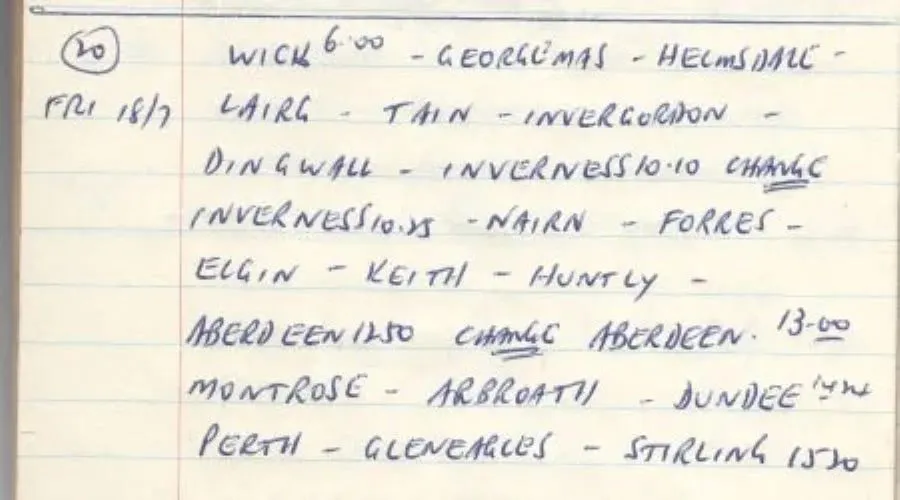 20 WICK 6.00 - GEORGEMAS - HELMSDALE -
FRI 18/7 LAIRG - TAIN - INVERGORDON -
DINGWALL - INVERNESS 10.10 CHANGE
INVERNESS 10.25 - NAIRN - FORRES -
ELGIN - KEITH - HUNTLY -
ABERDEEN 1250 CHANGE ABERDEEN. 13.00
MONTROSE - ARBROATH - DUNDEE
PERTH - GLENEAGLES - STIRLING 1530